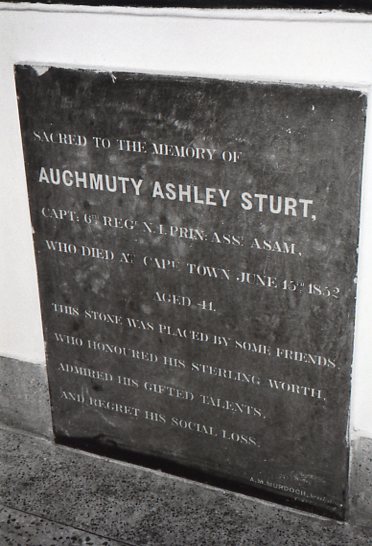 SACRED TO THE MEMORY OF
AUCHMUTY ASHLEY STURT,
CAPT: 6TH REGT N.I. PRIN: ASST ASAM,
WHO DIED AT CAPE TOWN JUNE 15TH 1852
AGED 41.
THIS STONE WAS PLACED BY SOME FRIENDS,
WHO HONOURED HIS STERLING WORTH,
ADMIRED HIS GIFTED TALENTS,
AND REGRET HIS SOCIAL LOSS.
A.M. MURDOCH,